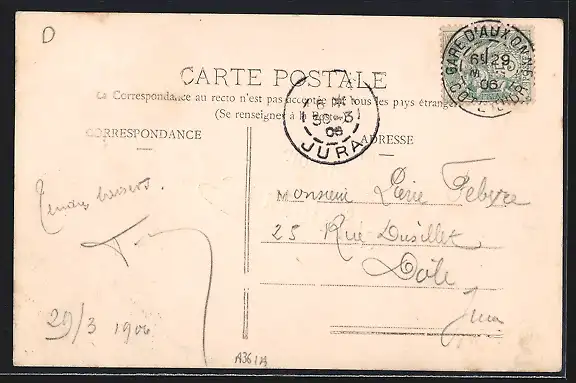 D
GARE D'AUXONNE
6E 29
06
CARTE POSTALE
La Correspondance au recto n'est pas acceptée par tous les pays étrangers
(Se renseigner à la Poste)
30 - 3
06
JURA
CORRESPONDANCE
ADRESSE
Tendres baisers.
Monsieur Pierre Febvre
25 Rue Dusillet
Dôle
Jura
29/3 1906
A361A